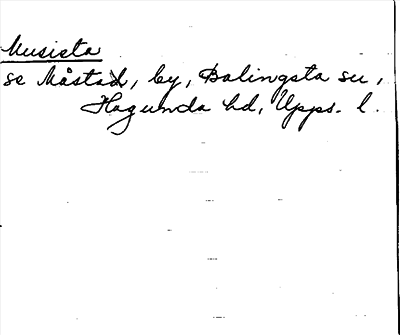 Musista
se Måstad, by, Balingsta sn,
Hagunda hd, Upps. l.